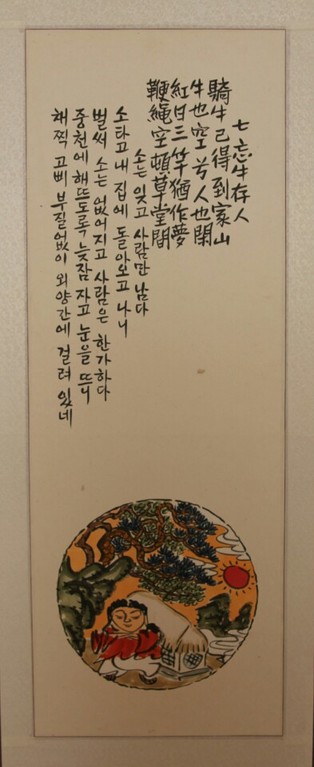 七忘牛存人
騎牛已得到家山
牛也空兮人也閑
紅日三竿猶作夢
鞭繩空頓草堂間
소는 잊고 사람만 남다
소 타고 내 집에 돌아오고 나니
벌써 소는 없어지고 사람은 한가하다
중천에 해 뜨도록 늦잠 자고 눈을 뜨니
채찍 고삐 부질없이 외양간에 걸려 있네